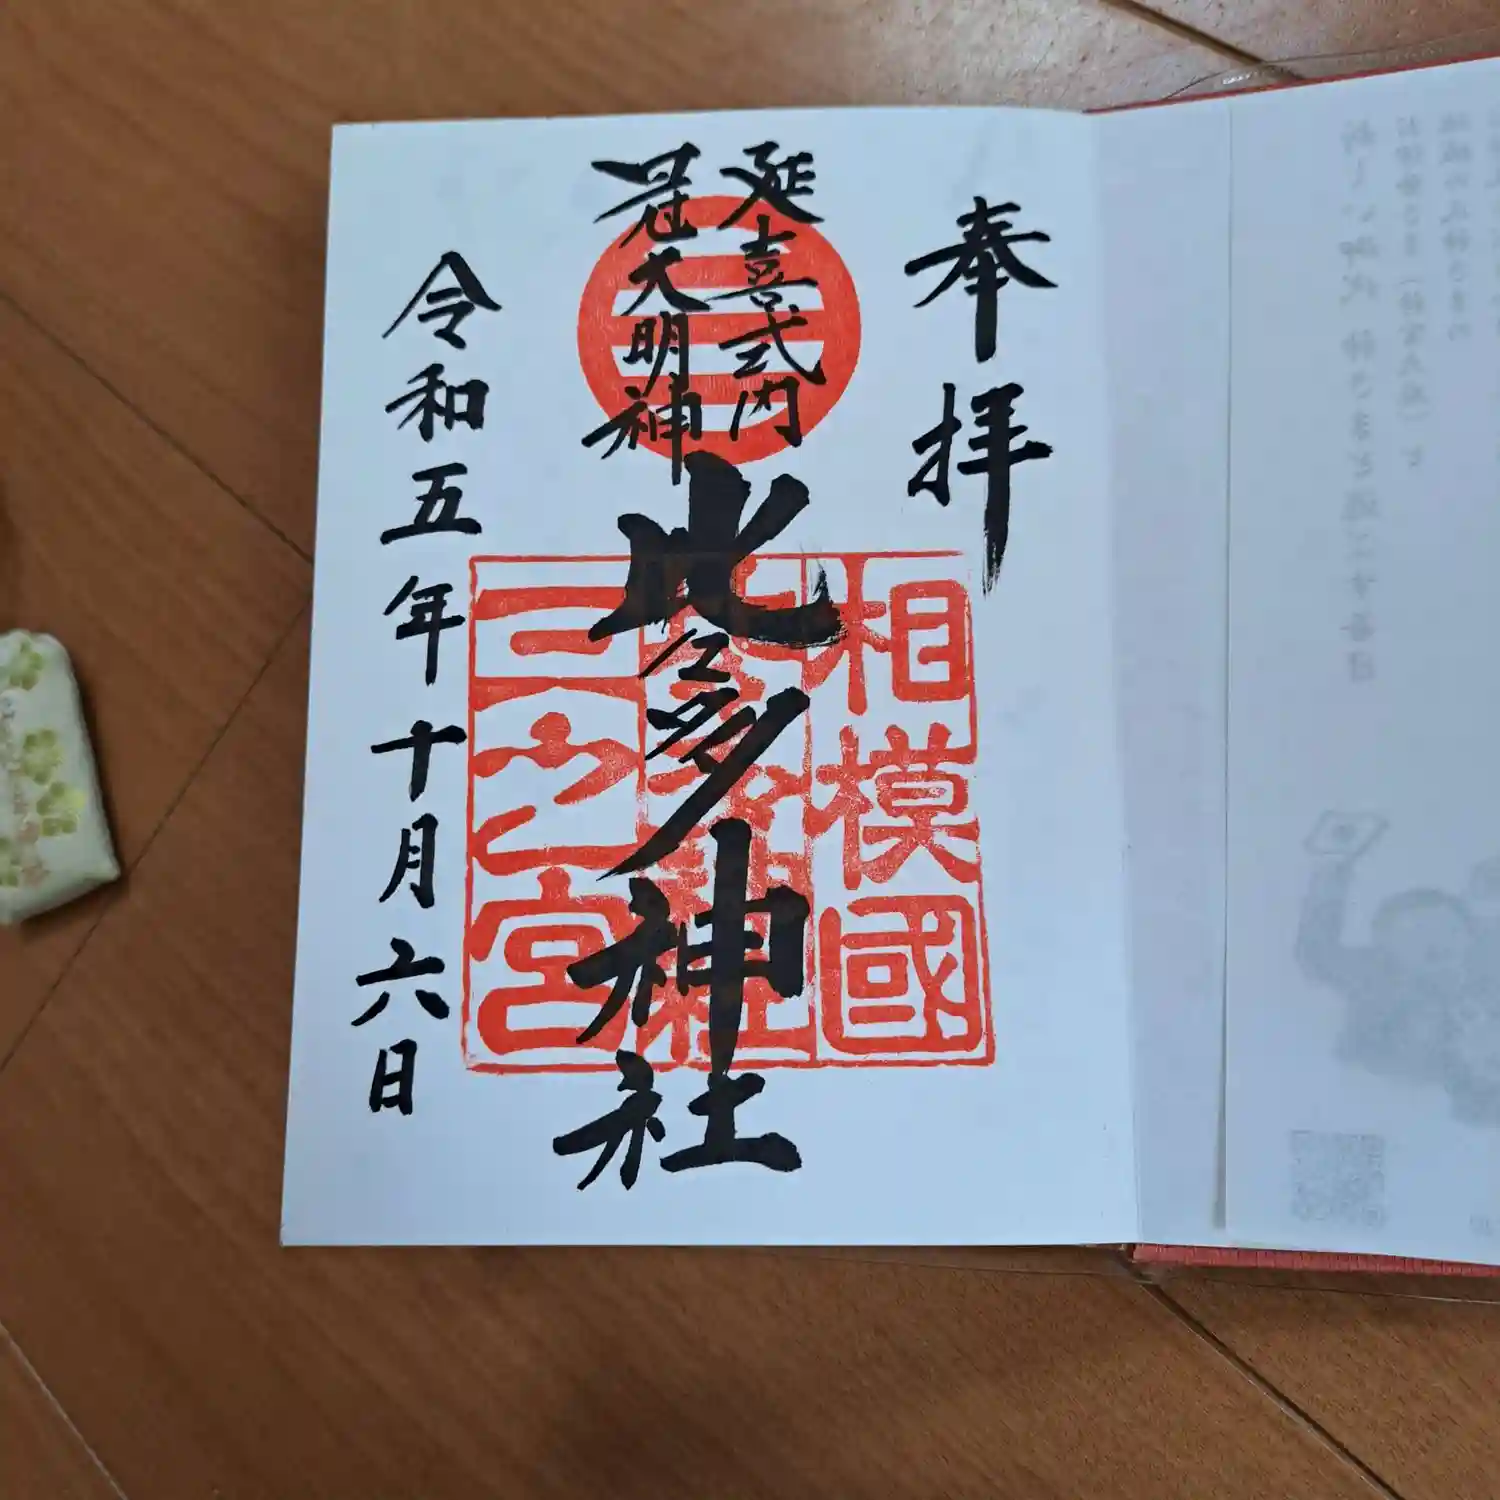 奉拝
延喜式内
冠大明神
比々多神社
相模國
三之宮
令和五年十月六日